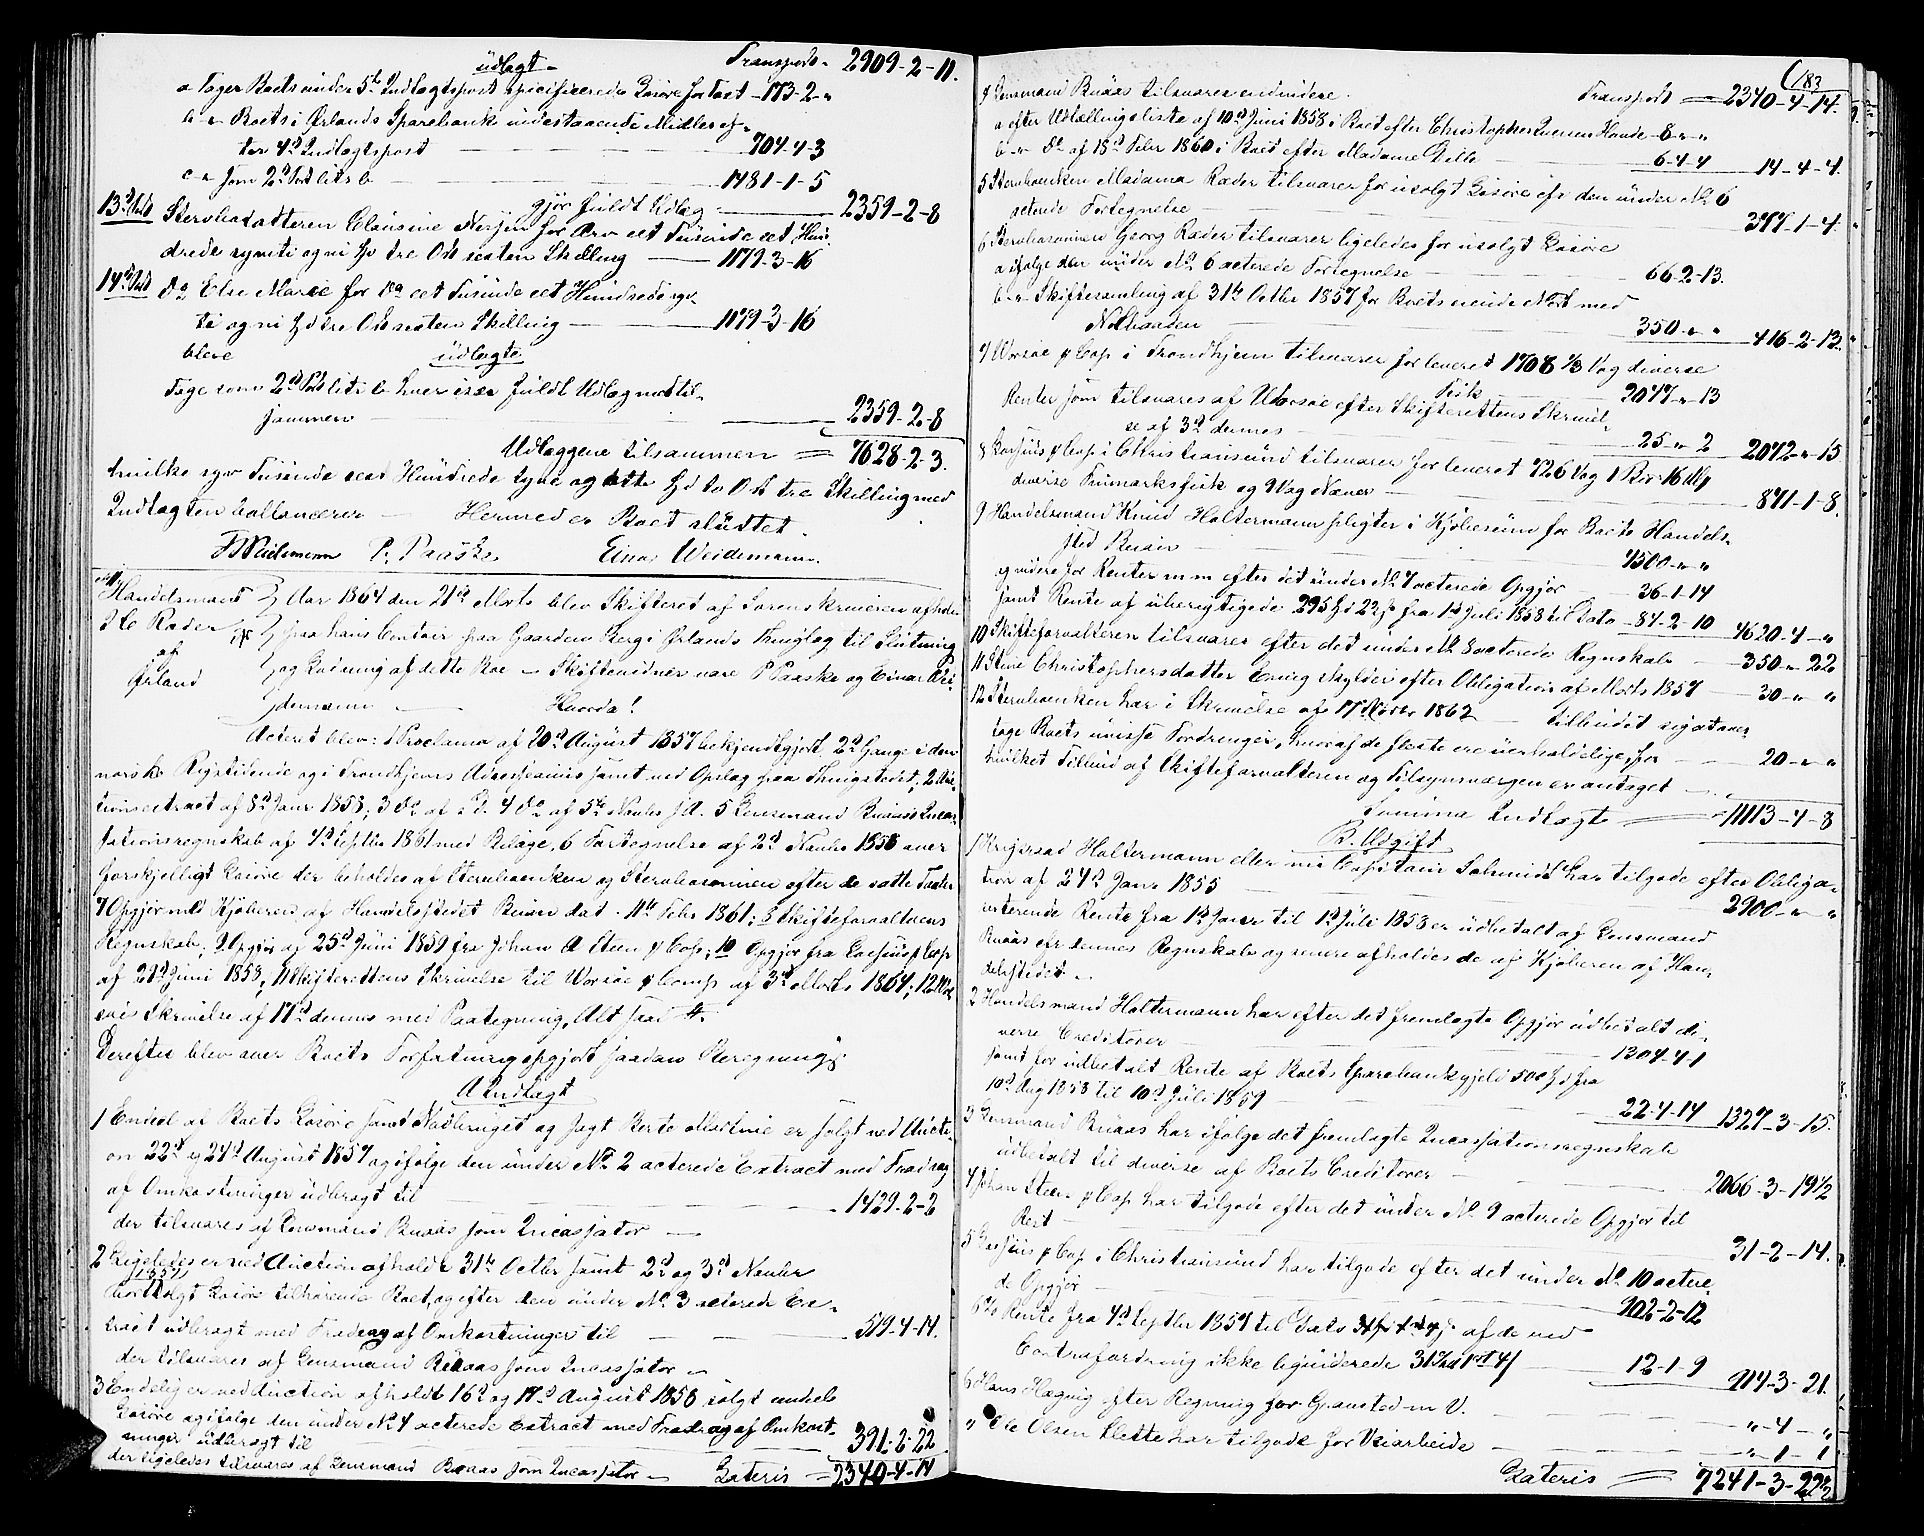 Transport 2909-2-11.
udlagt
a Tager Boets under 5te Indtægtspost specificerede Løsøre for Taxt - 173-2-"
b " Boets i Ørlands Sparebank indestaaende Midler ef-
ter 4de Indtægtspost 704-4-3
c " som 2d Post litr b 1481-1-5
gjør fuldt Udlæg 2359-2-8
13de Post Sterbdatteren Clausine Nersjen for Arv eet Tusinde eet Hun-
drede sytti og ni Spd tre Ort sexten Skilling 1179-3-16
14de Post Do Else Marie for Do eet Tusinde eet Hundrede syt-
ti og ni Spd tre Ort sexten Skilling 1179-3-16
bleve udlagte
Tage som 2d Post litr b hver især fuldt Udlæg med til-
sammen 2359-2-8
Udlæggene tilsammen = 7628-2-3.
hvilke syv Tusinde sex Hundrede tyve og otte Spd to Ort tre Skilling med
Indtægten ballancerer Hermed er Boet sluttet.
P. Paaske Einar Weidemann.
Handelsmand Aar 1864 den 21de Marts blev Skifteret af Sorenskriveren afholdt
Ræder paa hans Contoir paa Gaarden Berg i Ørlands Thinglag til Slutning
af og Lukning af dette Boe - Skiftevidner vare P Paaske og Einar Wei-
Ørland demann Hvorda!
Acteret blev: 1 Proclama af 20de August 1857 bekjendtgjort 2de Gange i den
norske Rigstidende og i Trondhjems Adresseavis samt ved Opslag paa Thingstedet; 2 Auc-
tionsextract af 8de Janr 1858; 3 Do af s.D. 4 Do af 5te Novbr s.A. 5 Lensmand Buaas's Incas-
sationsregnskab af 4de Septbr 1861 med Bilage, 6 Fortegnelse af 2de Novbr 1858 over
forskjelligt Løsøre der beholdes af Sterbenken og Sterbsønnen efter de satte Taxter
7 Opgjør med Kjøberen af Handelsstedet Buaen dat. 11te Febr 1861; 8 Skifteforvalterens
Regnskab; 9 Opgjør af 25de Juni 1859 fra Johan A Steen & Cop; 10 Opgjør fra & Cop
af 21de Juni 1858; 11 Skifterettens Skrivelse til Worsøe & Comp af 3de Marts 1864; 12 Wor-
søes Skrivelse af 17de dennes med Paategning, Alt saal #.
Derefter blev over Boets Forfatning opgjort saadan Beregning:
A Indtægt
1 Endeel af Boets Løsøre samt Nødbruget og Jagt Berte Martine er solgt ved Aucti-
on 22de og 24de August 1857 og ifølge den under No 2 acterede Extract med Fradrag
af Omkostninger udbragt til 1429-2-2
der tilsvares af Lensmand Buaas som Incassator
2 Ligeledes er ved Auction afholdt 31te Octbr samt 2de og 3de Novbr
1857 bortsolgt Løsøre tilhørende Boet, og efter den under No 3 acterede Ex-
tract udbragt med Fradrag af Omkostninger til 519-4-14.
der tilsvares af Lensmand Buaas som Incassator
3 Endelig er ved Auction afholdt 16de og 17de August 1858 solgt endeel
Løsøre og ifølge den under No 4 acterede Extract med Fradrag af Omkost-
ninger udbragt til 391-2-22
der ligeledes tilsvares af Lensmand Buaas som Incassator Lateris 2340-4-14
183
Transport 2340-4-14.
4 Lensmand Buaas tilsvarer endvidere
a efter Udtællingsliste af 10de Juni 1858 i Boet efter Christopher Iversen Hovde 8-"-"
b " Do af 18de Febr 1860 i Boet efter Madame Delle 6-4-4 14-4-4.
5 Sterbenken Madame Ræder tilsvarer for usolgt Løsøre efr den under No 6
acterede Fortegnelse 377-1-4.
6 Sterbsønnen Georg Ræder tilsvarer ligeledes for usolgt Løsøre
a ifølge den under No 6 acterede Fortegnelse 66-2-13.
b " Skiftesamling af 31te Octbr 1857 for Boets med
350-"-" 416-2-13.
7 Worsøe & Cop i Trondhjem tilsvarer for leveret 1708 1/3 Vog diverse
Fisk 2047-"-13
Renter som tilsvares af Worsøe efter Skifterettens Skrivel-
se af 3de dennes 25-"-2 2072-"-15
8 & Cop i Christiansund tilsvarer for leveret 726 Vog 1 Bis 16 Mk
diverse Finmarksfisk og 9 Vog Næver 871-1-8.
9 Handelsmand Knud Holtermann pligter i Kjøbesum for Boets Handels-
sted Buaen 4500-"-"
og videre for Renter m m efter det under No 7 acterede Opgjør 36-1-14
samt Rente af uberigtigede 295 Spd 22 s fra 1de Juli 1858 til Dato 84-2-10 4620-4-"
10 Skifteforvalteren tilsvarer efter det under No 8 acterede Regnskab 350-"-22
11 Stine Christophersdatter skylder efter Obligation af Marts 1857 30-"-"
12 Sterbenken har i Skrivelse af 17de Novbr 1862 tilbudet sig at over-
tage Boets uvisse Fordringer, hvoraf de fleste ere uerholdelige, for 20-"-"
hvilket Tilbud af Skifteforvalteren og Tilsynsværgen er antaget
Summa Indtægt 11113-4-8
B. Udgift
1 Holtermann eller nu Capitain Schmidt har tilgode efter Obliga-
tion af 24de Janr 1855 2900-"-"
resterende Rente fra 1de Janr til 1de Juli 1858 er udbetalt af Lensmand
Buaas efr dennes Regnskab og senere afholdes de af Kjøberen af Han-
delsstedet.
2 Handelsmand Holtermann har efter det fremlagte Opgjør udbetalt di-
verse Creditorer 1304-4-1
samt for udbetalt Rente af Boets Sparebankgjeld 500 Spd fra
10de Aug 1858 til 10de Juli 1859 22-4-14 1327-3-15.
3 Lensmand Buaas har ifølge det fremlagte Incassationsregnskab
udbetalt til diverse af Boets Creditorer 2066-3-19½
4 Johan Steen & Cop har tilgode efter det under No 9 acterede Opgjør til
Rest 31-2-14.
5 & Cop i Christiansund har tilgode efter det under No 10 actere-
de Opgjør 902-2-12
6% Rente fra 4de Septbr 1857 til Dato af de ved
Contrafordring ikke liqviderede 31 12-1-9 914-3-21.
6 Hans Høgvig efter Regning for Gravsted m V. "-4-"
" Ole Olsen Slette har tilgode for Veiarbeide "-1-1
Lateris 7241-3-22½